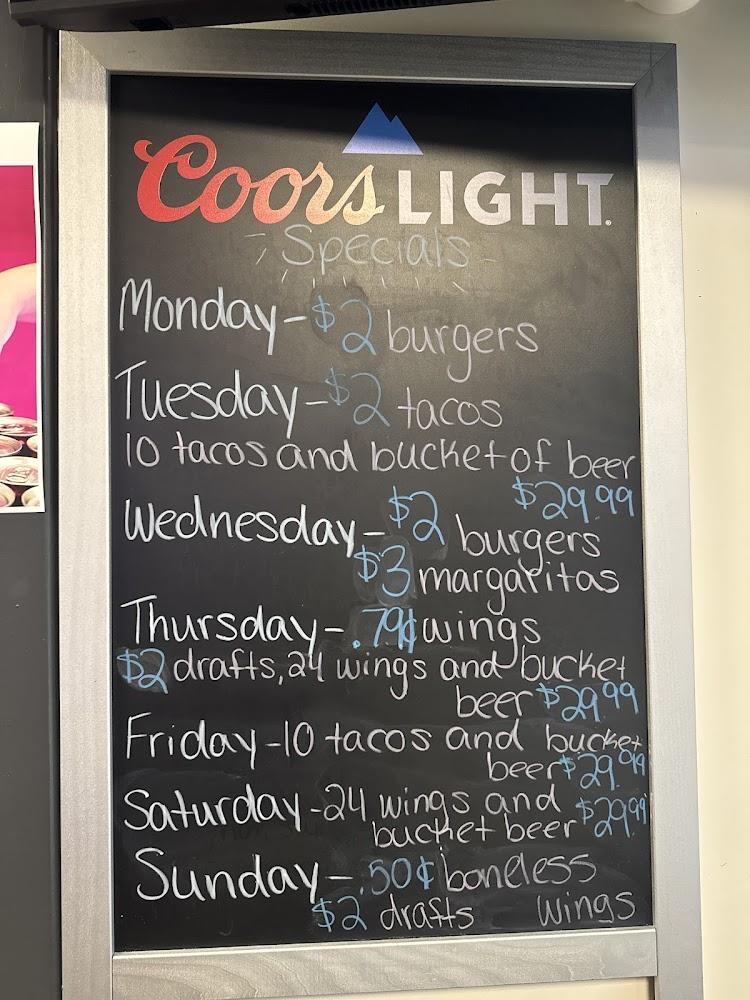 Coors LIGHT
Specials
Monday-$2 burgers
Tuesday-$2 tacos
10 tacos and bucket of beer
$29.99
Wednesday-$2 burgers
$3 margaritas
Thursday-.79¢ wings
$2 drafts, 24 wings and bucket
beer $29.99
Friday-10 tacos and bucket
beer $29.99
Saturday-24 wings and $29.99
bucket beer
Sunday-.50¢ boneless
$2 drafts wings